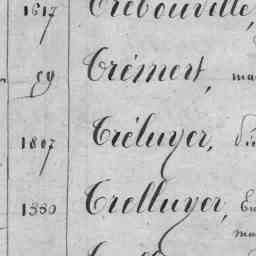 1617 Trébouville,
59 Trémert, ma
1807 Tréluyer,
1880 Trelluyer, Eu
ma